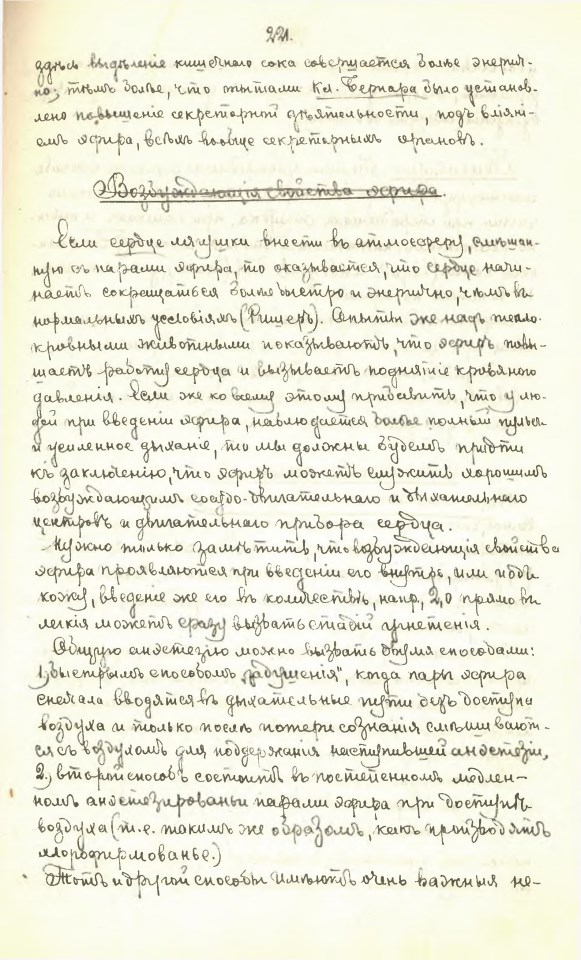 221.
здѣсь выдѣленіе кишечнаго сока совершается болѣе энергич-
но; тѣмъ болѣе, что опытами Кл. Бернара было установ-
лено повышеніе секреторной дѣятельности, подъ вліяні-
емъ эфира, всѣхъ вообще секреторныхъ органовъ.
Возбуждающія свойства эфира.
Если сердце лягушки внести въ атмосферу, смѣшан-
ную съ парами эфира, то оказывается, что сердце начи-
наетъ сокращаться болѣе быстро и энергично, чѣмъ въ
нормальныхъ условіяхъ (Рищеръ). Опыты же надъ тепло-
кровными животными показываютъ, что эфиръ повы-
шаетъ работу сердца и вызываетъ поднятіе кровяного
давленія. Если же ко всему этому прибавить, что у лю-
дей при введеніи эфира, наблюдается болѣе полный пульсъ
и усиленное дыханіе, то мы должны будемъ придти
къ заключенію, что эфиръ можетъ служить хорошимъ
возбуждающимъ сосудо-двигательнаго и дыхательнаго
центровъ и двигательнаго прибора сердца.
Нужно только замѣтить, что возбуждающія свойства
эфира проявляются при введеніи его внутрь, или подъ
кожу, введеніе же его въ количествѣ, напр, 2,0 прямо въ
легкія можетъ сразу вызвать стадій угнетенія.
Общую анэстезію можно вызвать двумя способами:
1, быстрымъ способомъ „задушенія", когда пары эфира
сначала вводятся въ дыхательные пути безъ доступа
воздуха и только послѣ потери сознанія смѣшивают-
ся съ воздухомъ для поддержанія наступившей анэстезіи,
2, второй способъ состоитъ въ постепенномъ медлен-
номъ анэстезированьи парами эфира при доступѣ
воздуха (т.е. такимъ же образомъ, какъ производятъ
хлороформованье.)
Тотъ и другой способы имѣютъ очень важныя не-